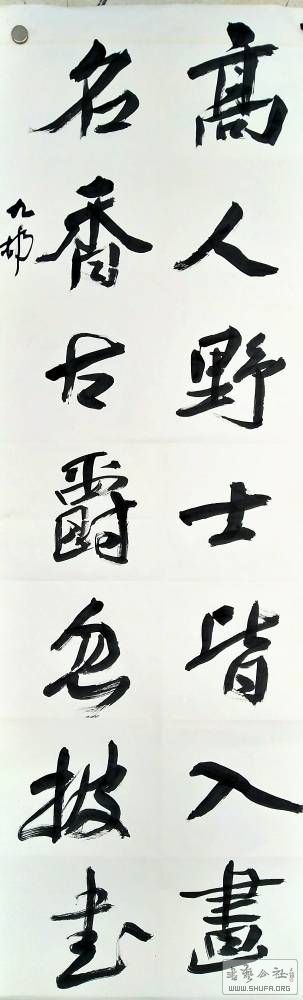 高人野士皆入畫
名香古爵忽披书
九
書藝公社
WWW.SHUFA.ORG